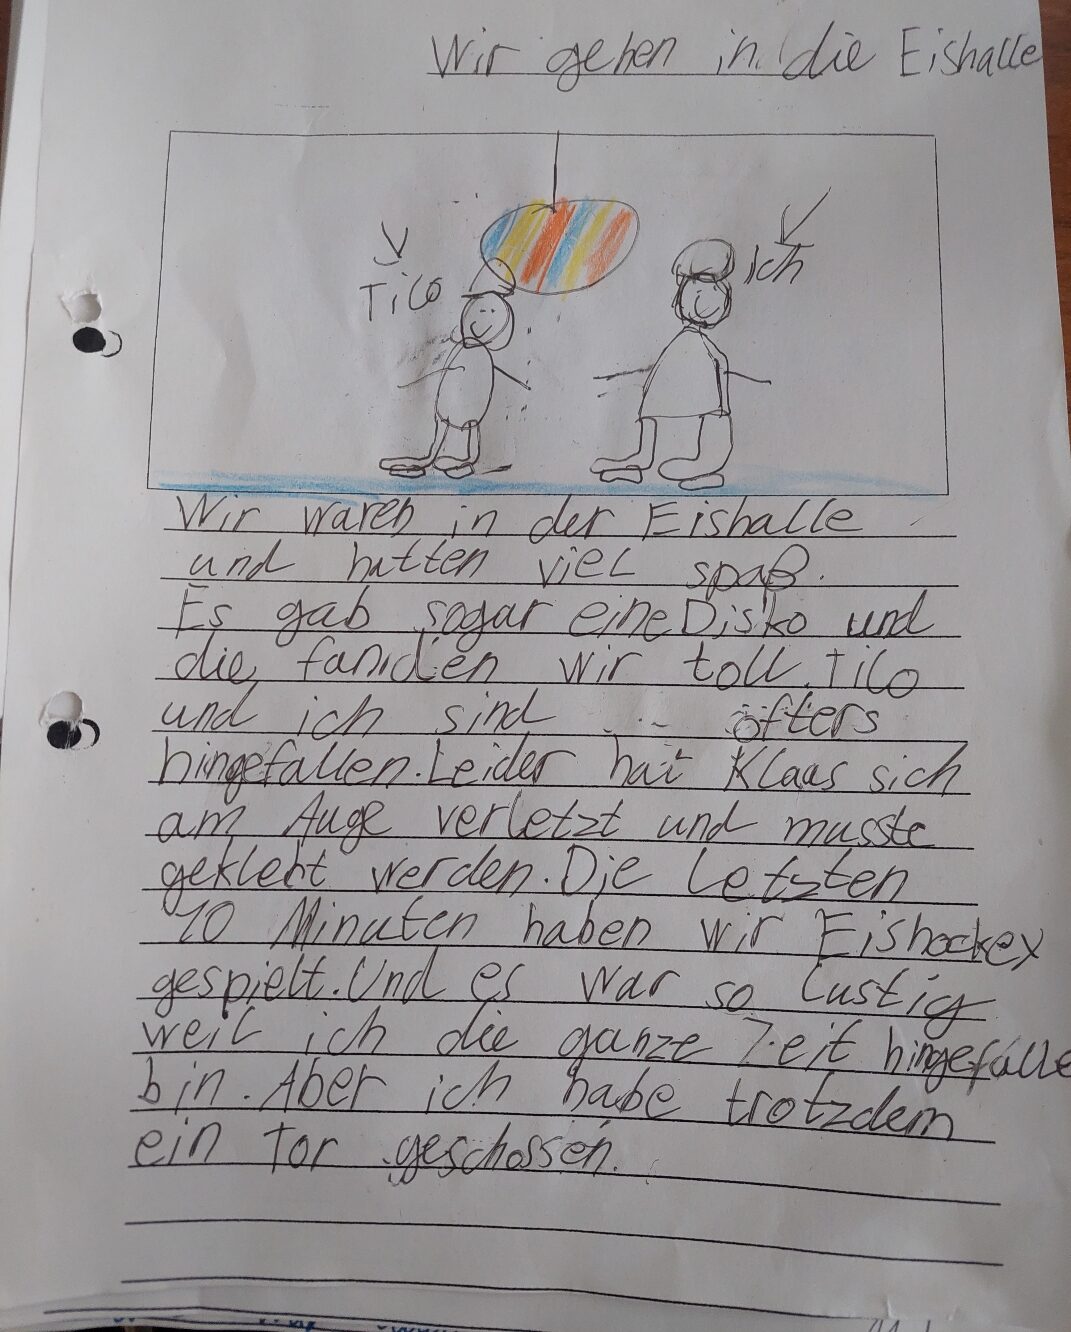 Wir gehen in die Eishalle
Tico
ich
Wir waren in der Eishalle
und hatten viel spaß.
Es gab sogar eine Disko und
die faniden wir toll. Tico
und ich sind öfters
hingefallen. Leider hat Klaas sich
am Auge verletzt und musste
geklebt werden. Die Letzten
10 Minuten haben wir Eishockey
gespielt. Und es war so lustig
weil ich die ganze Zeit hingefalle
bin. Aber ich habe trotzdem
ein Tor geschossen.